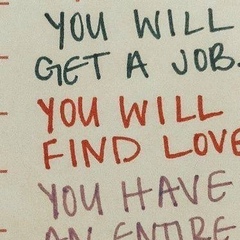 YOU WILL
GET A JOB.
YOU WILL
FIND LOVE
YOU HAVE
AN ENTIRE